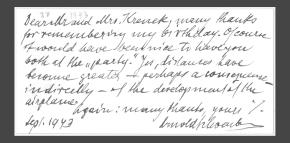 Dear Mr and Mrs. Krenek, many thanks
for remembering my birthday. Of course
it would have been nice to have you
both at the "party". Yes, distances have
become greater – perhaps a consequence
indirectly – of the development of the
airplane.
Again: many thanks, yours
Sept. 1943 Arnold Schoenberg